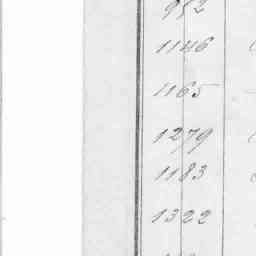 952
1146
1165
1279
1183
1322